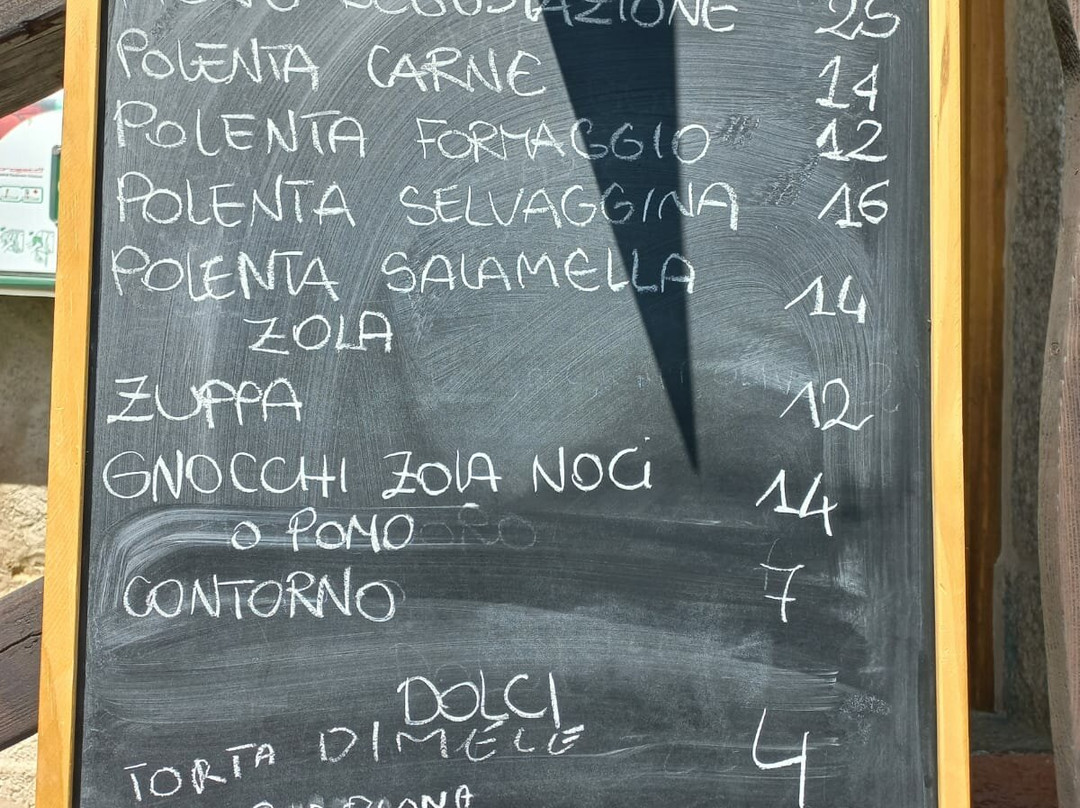 MENÙ DEGUSTAZIONE 25
POLENTA CARNE 14
POLENTA FORMAGGIO 12
POLENTA SELVAGGINA 16
POLENTA SALAMELLA 14
ZOLA
ZUPPA 12
GNOCCHI ZOLA NOCI 14
O POMO
CONTORNO 7
DOLCI
TORTA DI MELE 4